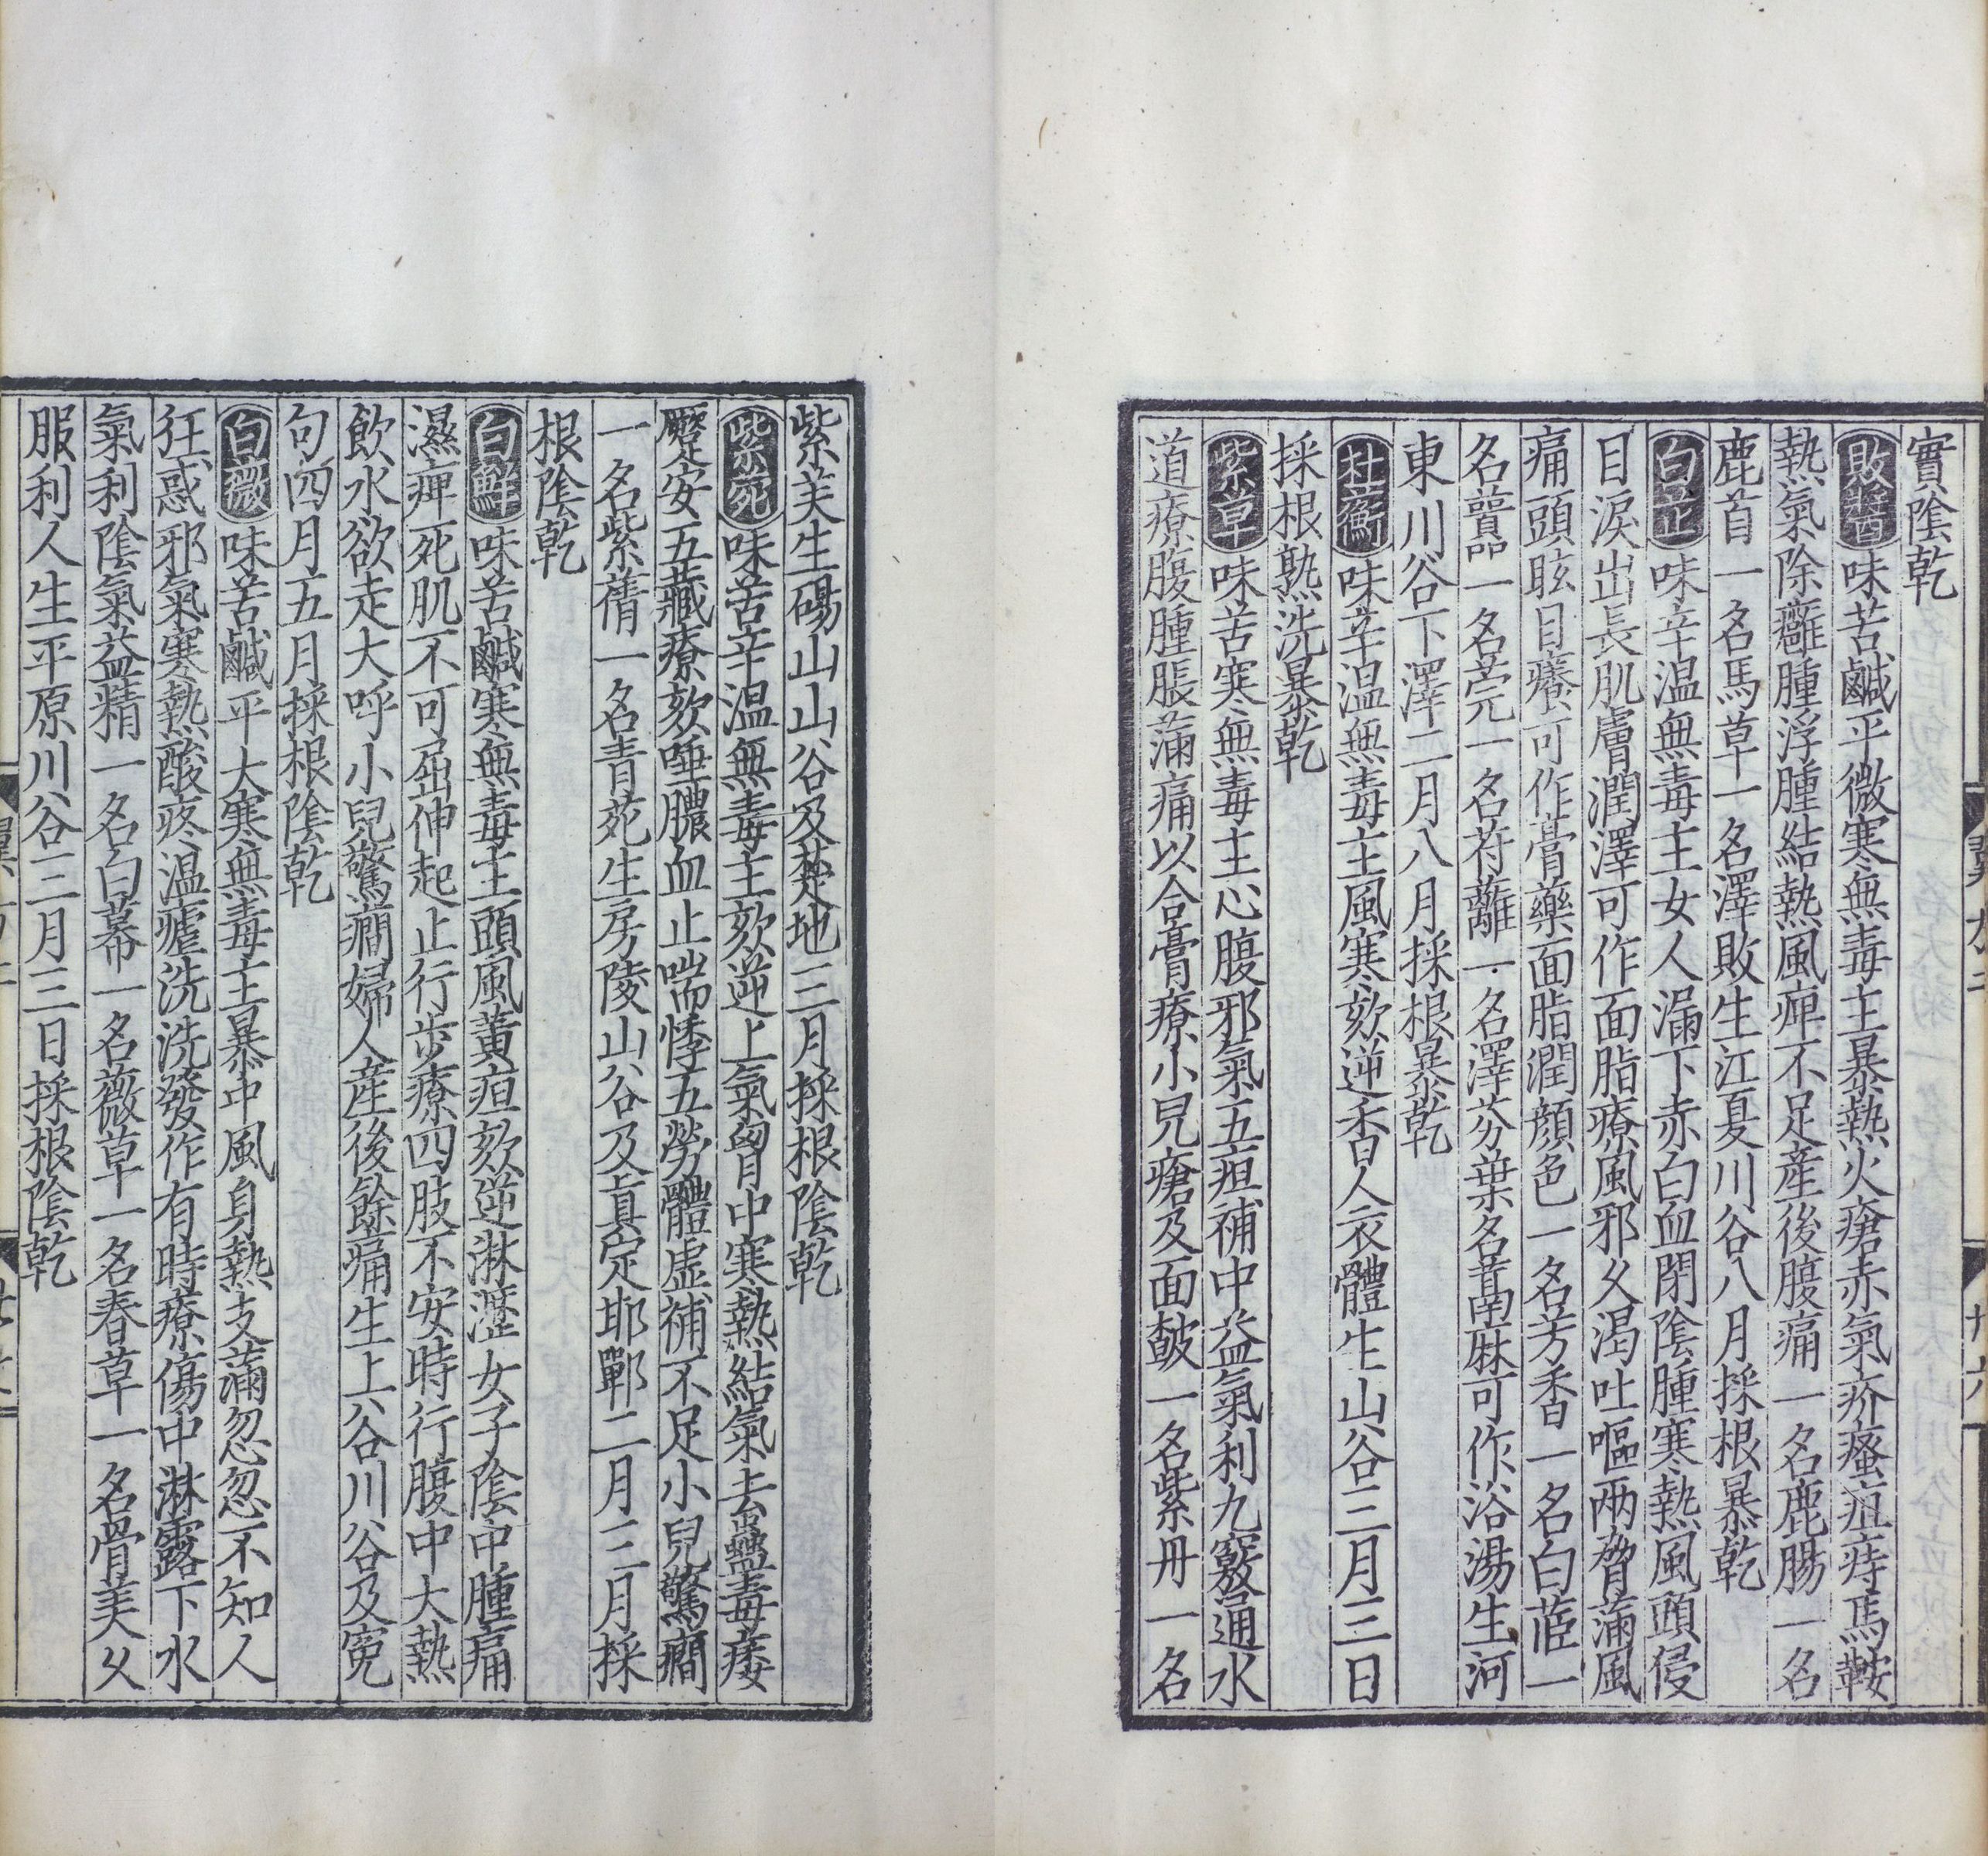 實陰乾
敗醬味苦鹹平微寒無毒主暴熱火瘡赤氣疥瘙疽痔馬鞍
熱氣除癰腫浮腫結熱風痺不足産後腹痛一名鹿腸一名
鹿首一名馬草一名澤敗生江夏川谷八月採根暴乾
白芷味辛温無毒主女人漏下赤白血閉陰腫寒熱風頭侵
目淚出長肌膚潤澤可作面脂療風邪久渴吐嘔兩脅滿風
痛頭眩目癢可作膏藥面脂潤顔色一名芳香一名白茝一
名虈一名莞一名苻蘺一名澤芬葉名蒚麻可作浴湯生河
東川谷下澤二月八月採根暴乾
杜蘅味辛温無毒主風寒欬逆香人衣體生山谷三月三日
採根熟洗暴乾
紫草味苦寒無毒主心腹邪氣五疸補中益氣利九竅通水
道療腹腫脹滿痛以合膏療小兒瘡及面皻一名紫丹一名
紫芙生碭山山谷及楚地三月採根陰乾
紫菀味苦辛温無毒主欬逆上氣胷中寒熱結氣去蠱毒痿
蹷安五藏療欬唾膿血止喘悸五勞體虛補不足小兒驚癇
一名紫蒨一名青菀生房陵山谷及眞定邯鄲二月三月採
根陰乾
白鮮味苦鹹寒無毒主頭風黃疸欬逆淋瀝女子陰中腫痛
濕痺死肌不可屈伸起止行步療四肢不安時行腹中大熱
飲水欲走大呼小兒驚癇婦人産後餘痛生上谷川谷及寃
句四月五月採根陰乾
白薇味苦鹹平大寒無毒主暴中風身熱支滿忽忽不知人
狂惑邪氣寒熱酸疼温瘧洗洗發作有時療傷中淋露下水
氣利陰氣益精一名白幕一名薇草一名春草一名骨美久
服利人生平原川谷三月三日採根陰乾